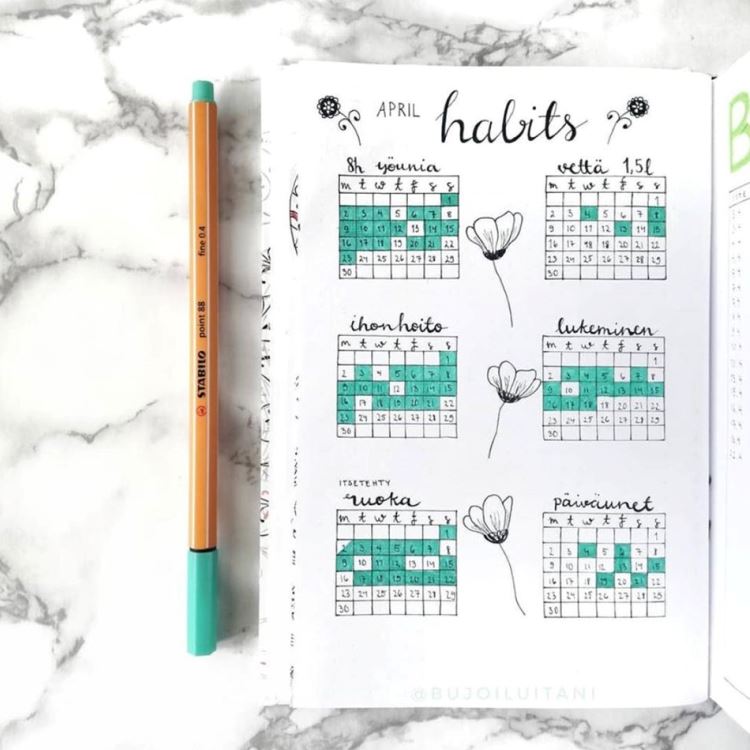 APRIL habits
8h yöunia
m t w t f s s
1
2 3 4 5 6 7 8
9 10 11 12 13 14 15
16 17 18 19 20 21 22
23 24 25 26 27 28 29
30
vettä 1,5l
m t w t f s s
1
2 3 4 5 6 7 8
9 10 11 12 13 14 15
16 17 18 19 20 21 22
23 24 25 26 27 28 29
30
ihonhoito
m t w t f s s
2 3 4 5 6 7 8
9 10 11 12 13 14 15
16 17 18 19 20 21 22
23 24 25 26 27 28 29
30
lukeminen
m t w t f s s
1
2 3 4 5 6 7 8
9 10 11 12 13 14 15
16 17 18 19 20 21 22
23 24 25 26 27 28 29
30
ITSETEHTY
ruoka
m t w t f s s
1
2 3 4 5 6 7 8
9 10 11 12 13 14 15
16 17 18 19 20 21 22
23 24 25 26 27 28 29
30
päiväunet
m t w t f s s
1
2 3 4 5 6 7 8
9 10 11 12 13 14 15
16 17 18 19 20 21 22
23 24 25 26 27 28 29
30
@BUJOILUITANI
STABILO point 88 fine 0.4